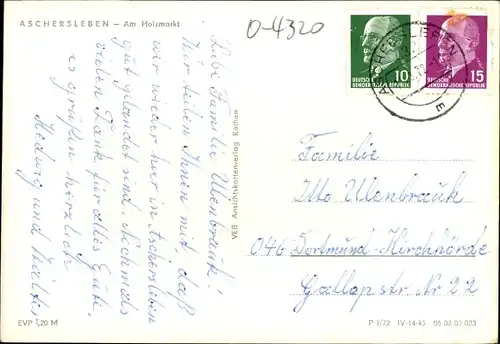 ASCHERSLEBEN — Am Holzmarkt
O-4320
Liebe Familie Ulenbrauk!
Wir teilen Ihnen mit, daß
wir wieder hier in Aschersleben
gut gelandet sind. Nochmals
vielen Dank für alles Gute,
es grüßen herzlich
Hedwig und Walter
VEB Ansichtskartenverlag Köthen
DEUTSCHE
DEMOKRATISCHE REPUBLIK
10
DEUTSCHE
DEMOKRATISCHE REPUBLIK
15
ASCHERSLEBEN
E
Familie
Otto Ulenbrauk
046 Dortmund-Kirchhörde
Gallopstr Nr 22
EVP 0,20 M
P 1/72 IV-14-45 05 03 02 023